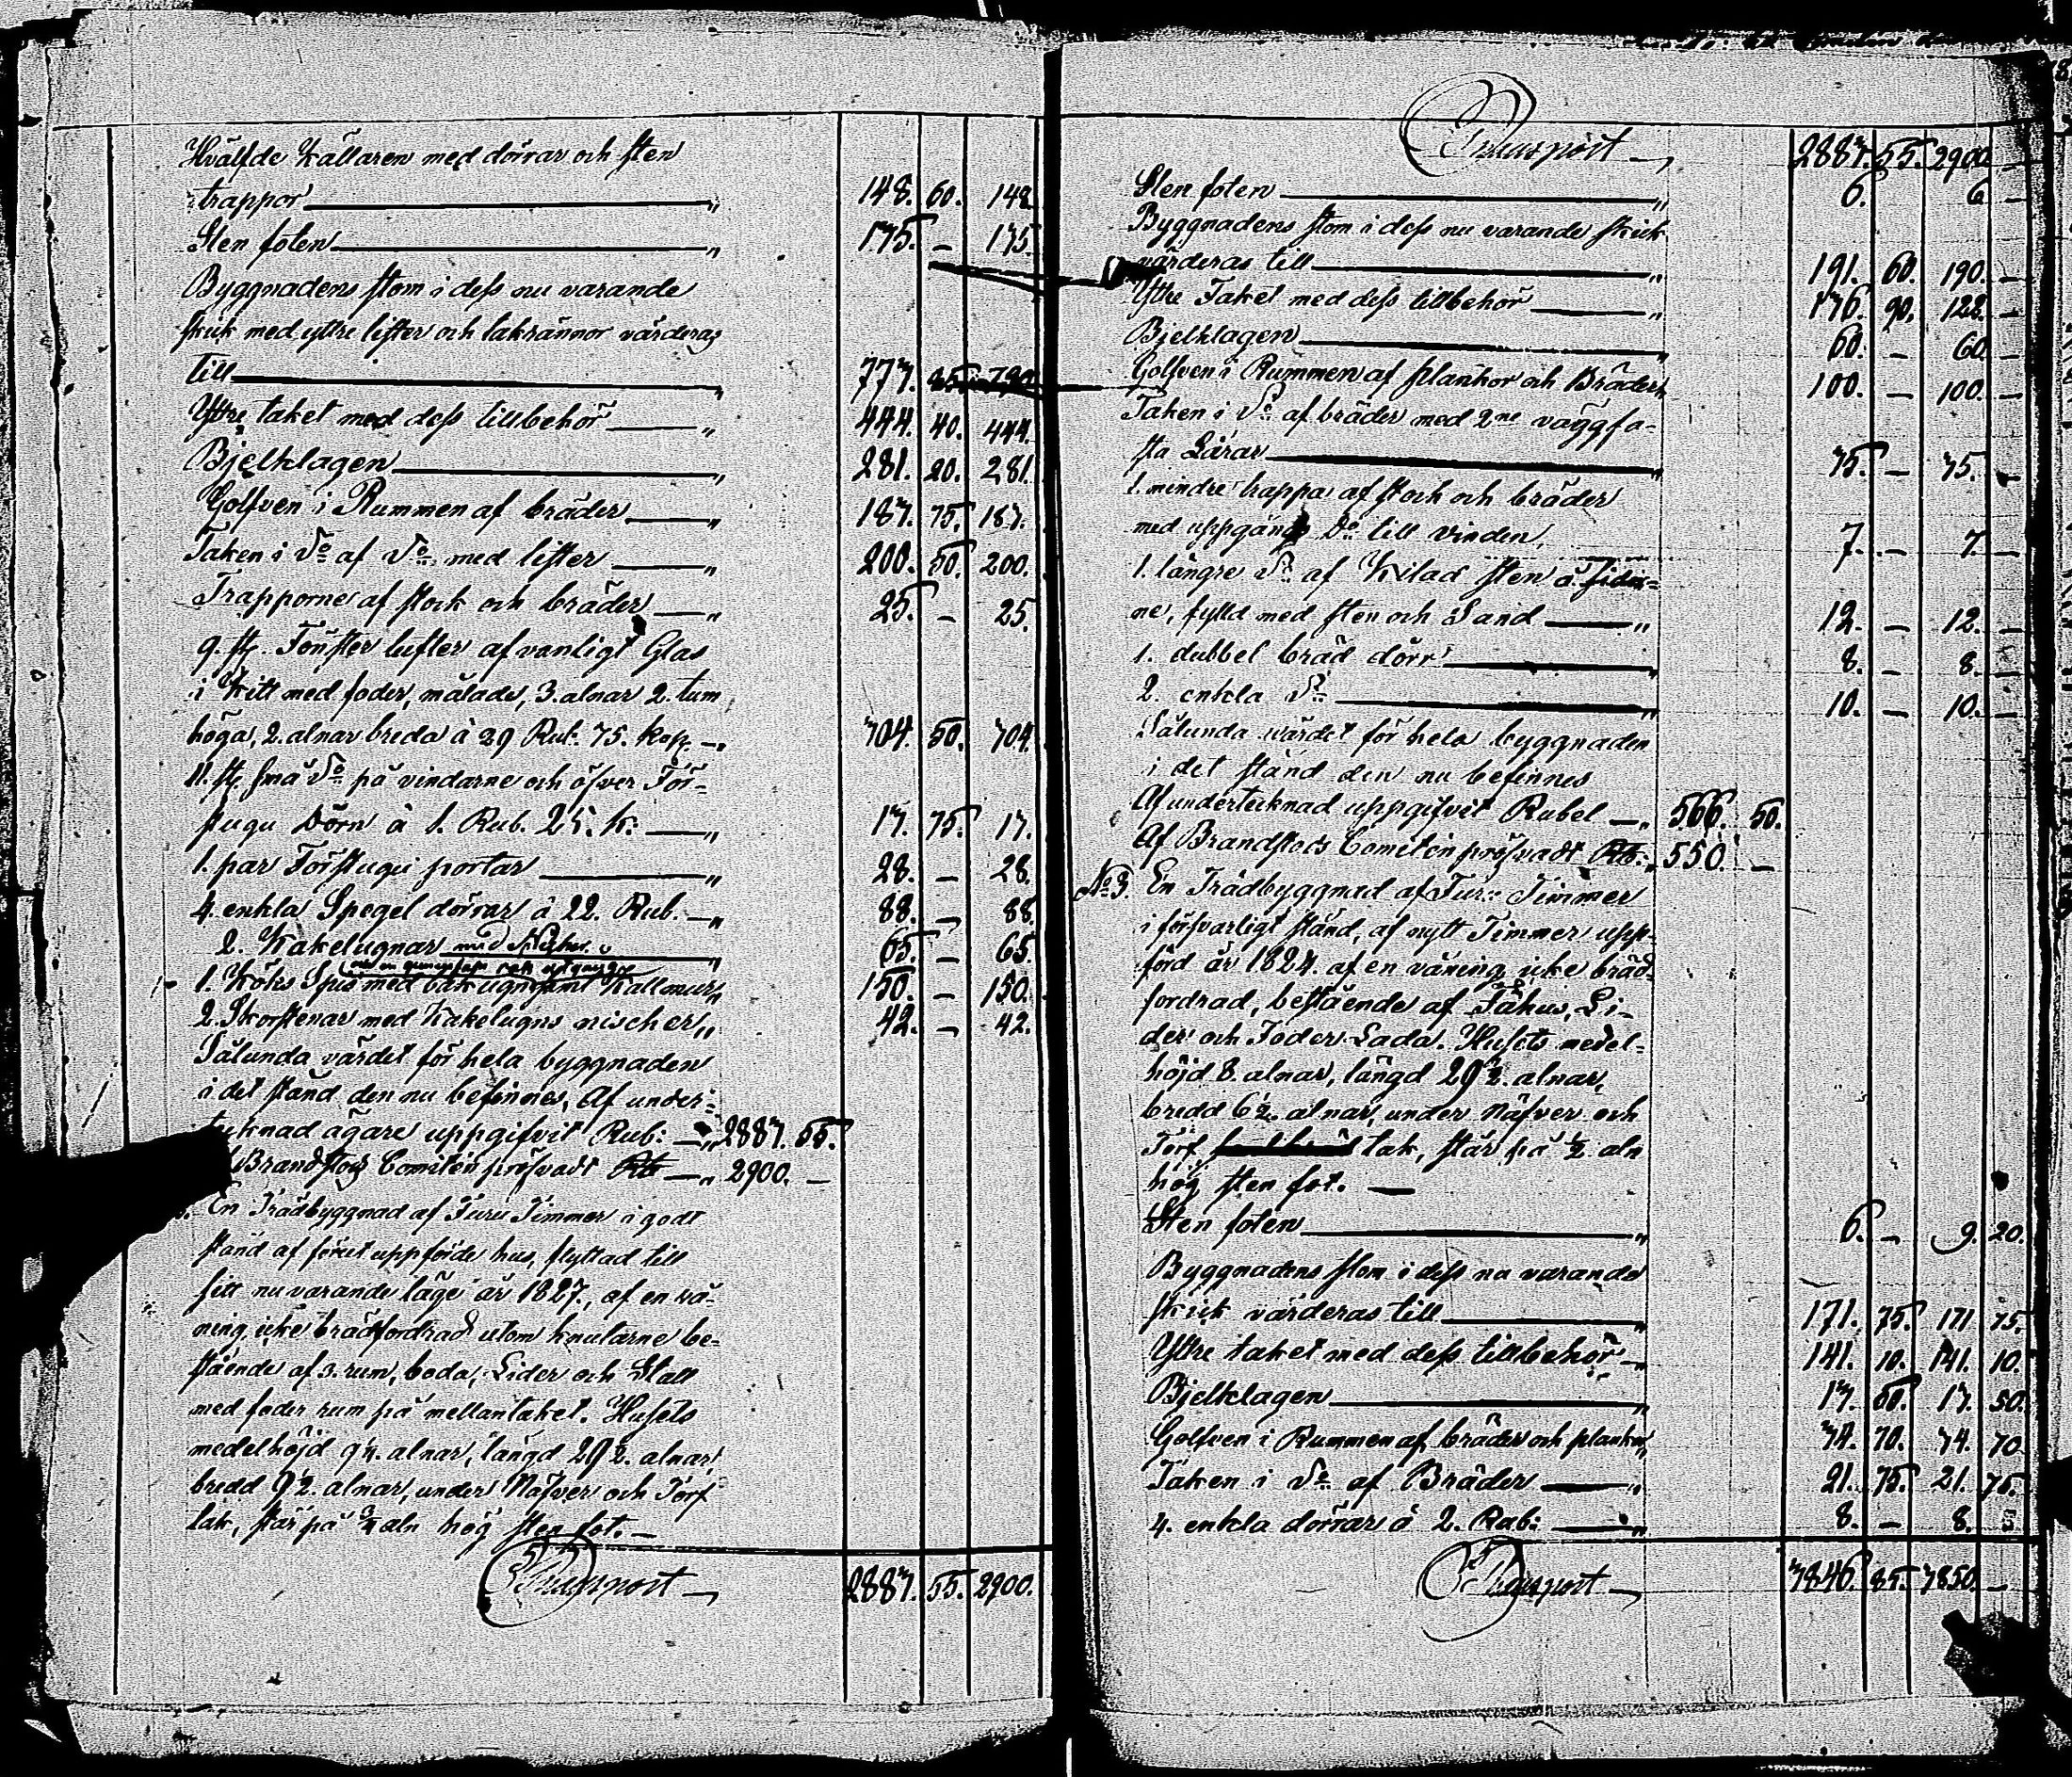 Hvälfde Källaren med dörrar och sten
trappor — „ 148. 60. 148.
Sten foten — „ 175. — 175.
Byggnadens stom i dess nu varande
skick med yttre lister och takrännor värderas
till — „ 777. 85. 790
Yttre taket med dess tillbehör — „ 444. 40. 444.
Bjelklagen — „ 281. 20. 281.
Golfven i Rummen af bräder — „ 187. 75. 187.
Taken i Do af Do med lister — „ 200. 50. 200.
Trapporne af stock och bräder — „ 25. — 25.
9. st. Fönster lufter af vanligt Glas
i Kitt med foder, målade, 3. alnar 2. tum
höga, 2. alnar breda à 29 Rub. 75. kop. — 704. 50. 704.
11. st. små Do på vindarne och öfver För-
stugu Dörn à 1. Rub. 25. k: — „ 17. 75. 17.
1. par Förstugu portar — „ 28. — 28.
4. enkla Spegel dörrar à 22. Rub. — „ 88. — 88
2. Kakelugnar med — „ 65. — 65.
1. Köks Spis med bakugn samt Kallmur „ 150. — 150.
2. Skorstenar med Kakelugns nischer „ 42. — 42.
Sålunda värdet för hela byggnaden
i det stånd den nu befinnes, Af under-
tecknad ägare uppgifvit Rub: — „ 2887. 55.
Brandstods Comitén pröfvadt Rb — „ 2900. —
En Trädbyggnad af Furu Timmer i godt
stånd af förut uppförde hus, flyttad till
sitt nu varande läge år 1827, af en vå-
ning, icke brädfordrad utom knutarne be-
stående af 3. rum, boda, Lider och Stall
med foder rum på mellantaket. Husets
medelhöjd 9¼. alnar, längd 29½. alnar,
bredd 9½. alnar, under Näfver och Torf
tak, står på ¾ aln hög sten fot. —
Transport — 2887. 55. 2900.
Transport — 2887. 55. 2900 —
Sten foten — „ 6. — 6 —
Byggnadens stom i dess nu varande skick
värderas till — „ 191. 60. 190. —
Yttre Taket med dess tillbehör — „ 176. 90. 122. —
Bjelklagen — „ 60. — 60 —
Golfven i Rummen af plankor och Bräder „ 100. — 100. —
Taken i Do af bräder med 2ne väggfa-
sta Lårar — „ 75. — 75. —
1. mindre trappa af stock och bräder
med uppgång Do till vinden, 7. — 7 —
1. längre Do af Kilad sten à sidor-
ne, fylld med sten och Sand — „ 12. — 12. —
1. dubbel bräd dörr — „ 8. — 8. —
2. enkla Do — „ 10. — 10. —
Sålunda värdet för hela byggnaden
i det stånd den nu befinnes
Af undertecknad uppgifvit Rubel — „ 566. 50.
Af Brandstods Comitén pröfvadt Rb: „ 550. —
No 3. En Trädbyggnad af Furu Timmer
i försvarligt stånd, af nytt Timmer upp-
förd år 1824. af en våning, icke bräd-
fordrad, bestående af Fähus, Li-
der och Foder Lada. Husets medel-
höjd 8. alnar, längd 29½. alnar,
bredd 6½. alnar, under Näfver och
Torf tak, står på ½ aln
hög sten fot. —
Sten foten — „ 6. — 9. 20.
Byggnadens stom i dess nu varande
skick värderas till — „ 171. 75. 171 75.
Yttre taket med dess tillbehör — „ 141. 10. 141. 10.
Bjelklagen — „ 17. 50. 17. 50.
Golfven i Rummen af bräder och plankor „ 74. 70. 74. 70
Taken i Do af Bräder — „ 21. 75. 21. 75.
4. enkla dörrar à 2. Rub: — „ 8. — 8. —
Transport — 7846. 85. 7850. —